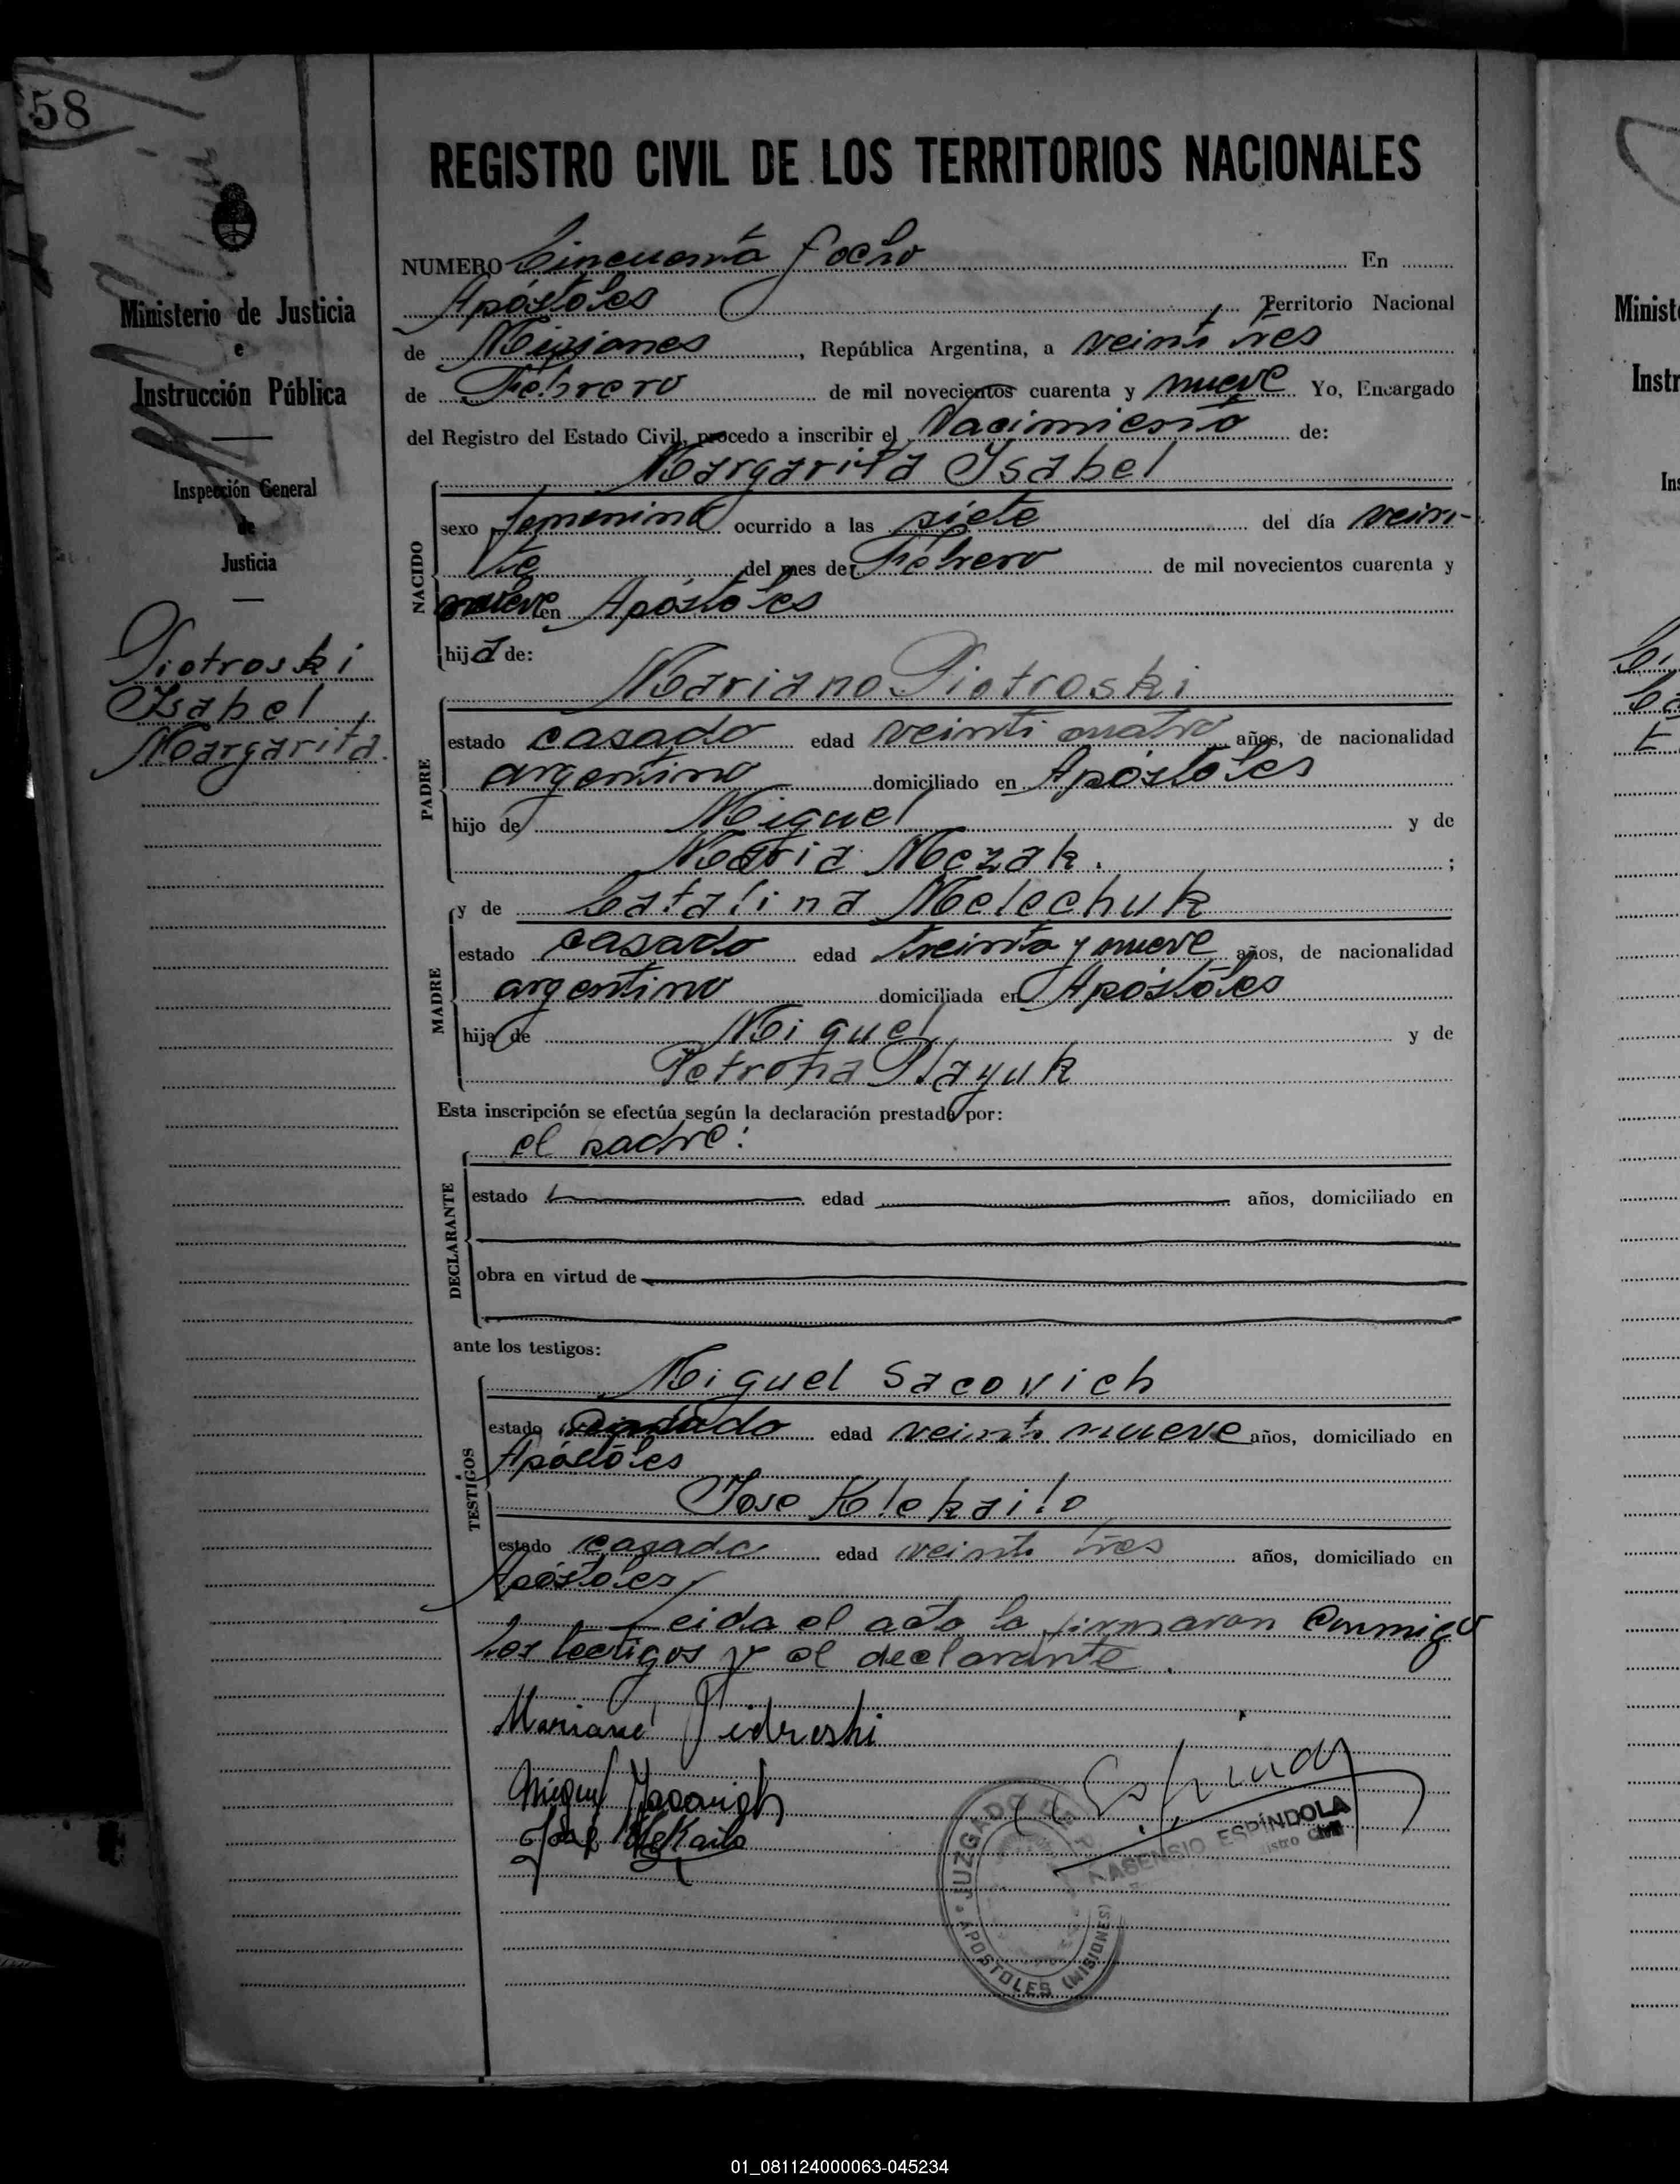 58
REGISTRO CIVIL DE LOS TERRITORIOS NACIONALES
NUMERO Cincuenta y ocho En
Apóstoles Territorio Nacional
de Misiones, República Argentina, a veinti tres
de Febrero de mil novecientos cuarenta y nueve Yo, Encargado
del Registro del Estado Civil, procedo a inscribir el Nacimiento de:
Margarita Ysabel
NACIDO
sexo femenino ocurrido a las siete del día vein-
te del mes de Febrero de mil novecientos cuarenta y
nueve en Apóstoles
hija de:
Mariano Piotroski
PADRE
estado casado edad veinti cuatro años, de nacionalidad
argentino domiciliado en Apóstoles
hijo de Miguel y de
Maria Mozak.;
y de Catalina Melechuk
MADRE
estado casado edad treinta y nueve años, de nacionalidad
argentino domiciliada en Apóstoles
hija de Miguel y de
Petrona
Esta inscripción se efectúa según la declaración prestada por:
el padre:
DECLARANTE
estado edad años, domiciliado en
obra en virtud de
ante los testigos:
TESTIGOS
Miguel Sacovich
estado edad veinti nueve años, domiciliado en
Apóstoles
Jose Klekailo
estado casado edad veinti tres años, domiciliado en
Apóstoles
Leida el acta la firmaron conmigo
los testigos y el declarante.
Ministerio de Justicia
e
Instrucción Pública
Inspección General
de
Justicia
Piotroski
Isabel
Margarita
JUZGADO DE PAZ
APOSTOLES (MISIONES)
ASENSIO ESPÍNDOLA
01_081124000063-045234